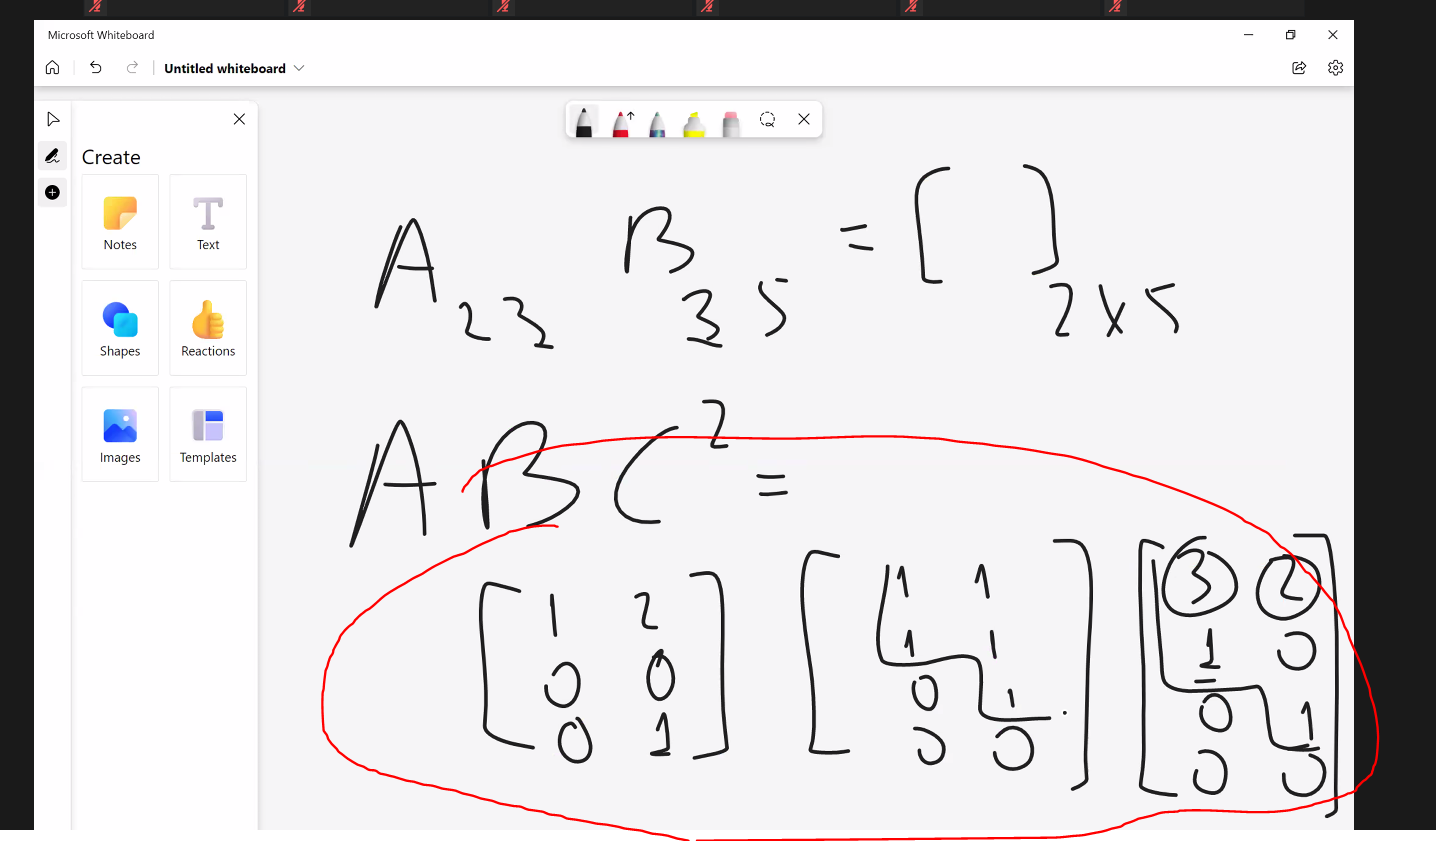 Microsoft Whiteboard
Untitled whiteboard
Create
Notes Text
Shapes Reactions
Images Templates
A 2 3 B 3 5 = [ ] 2 x 5
A B C 2 =
1 2 1 1 3 2
0 0 1 1 1 0
0 1 0 1 0 1
0 0 0 0